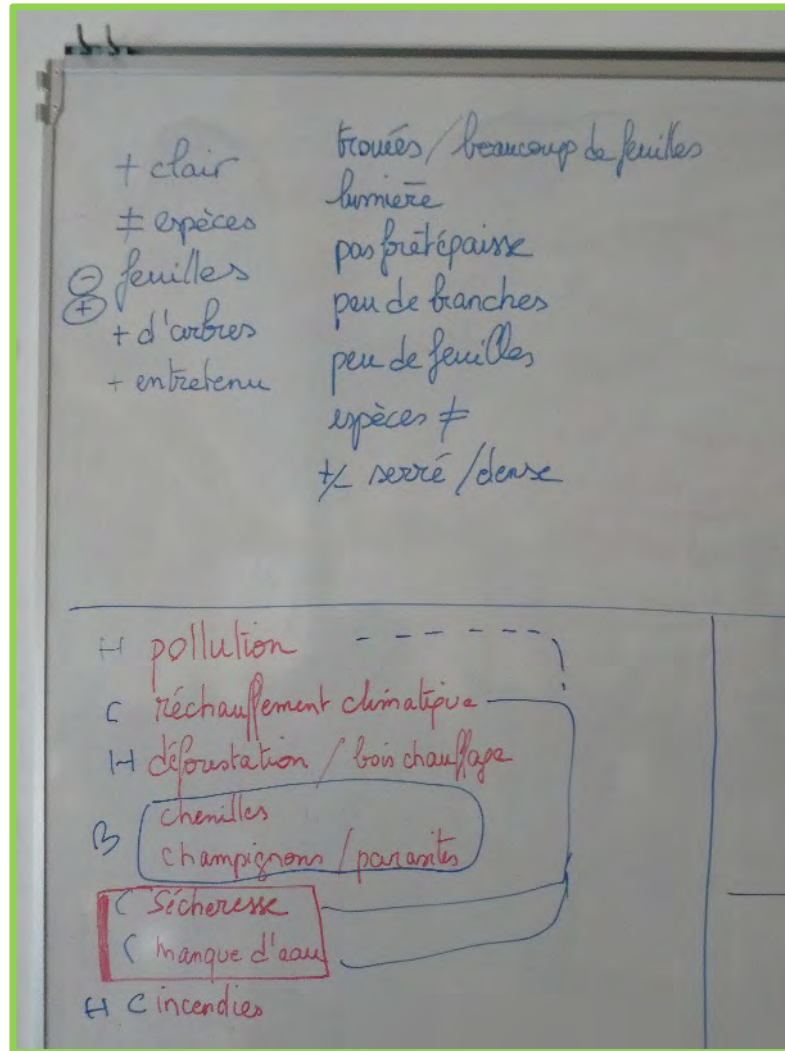 + clair
≠ espèces
⊖ feuilles
⊕
+ d'arbres
+ entretenu
trouées / beaucoup de feuilles
lumière
pas forêt épaisse
peu de branches
peu de feuilles
espèces ≠
+/- serré / dense
H pollution
C réchauffement climatique
H déforestation / bois chauffage
B chenilles
champignons / parasites
C Sécheresse
C manque d'eau
H C incendies